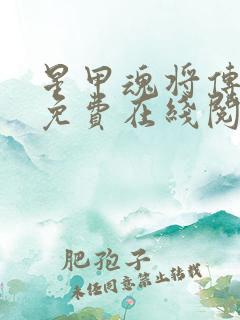 星甲魂将傳
免費在綫閱
肥孢子
未经同意禁止转载